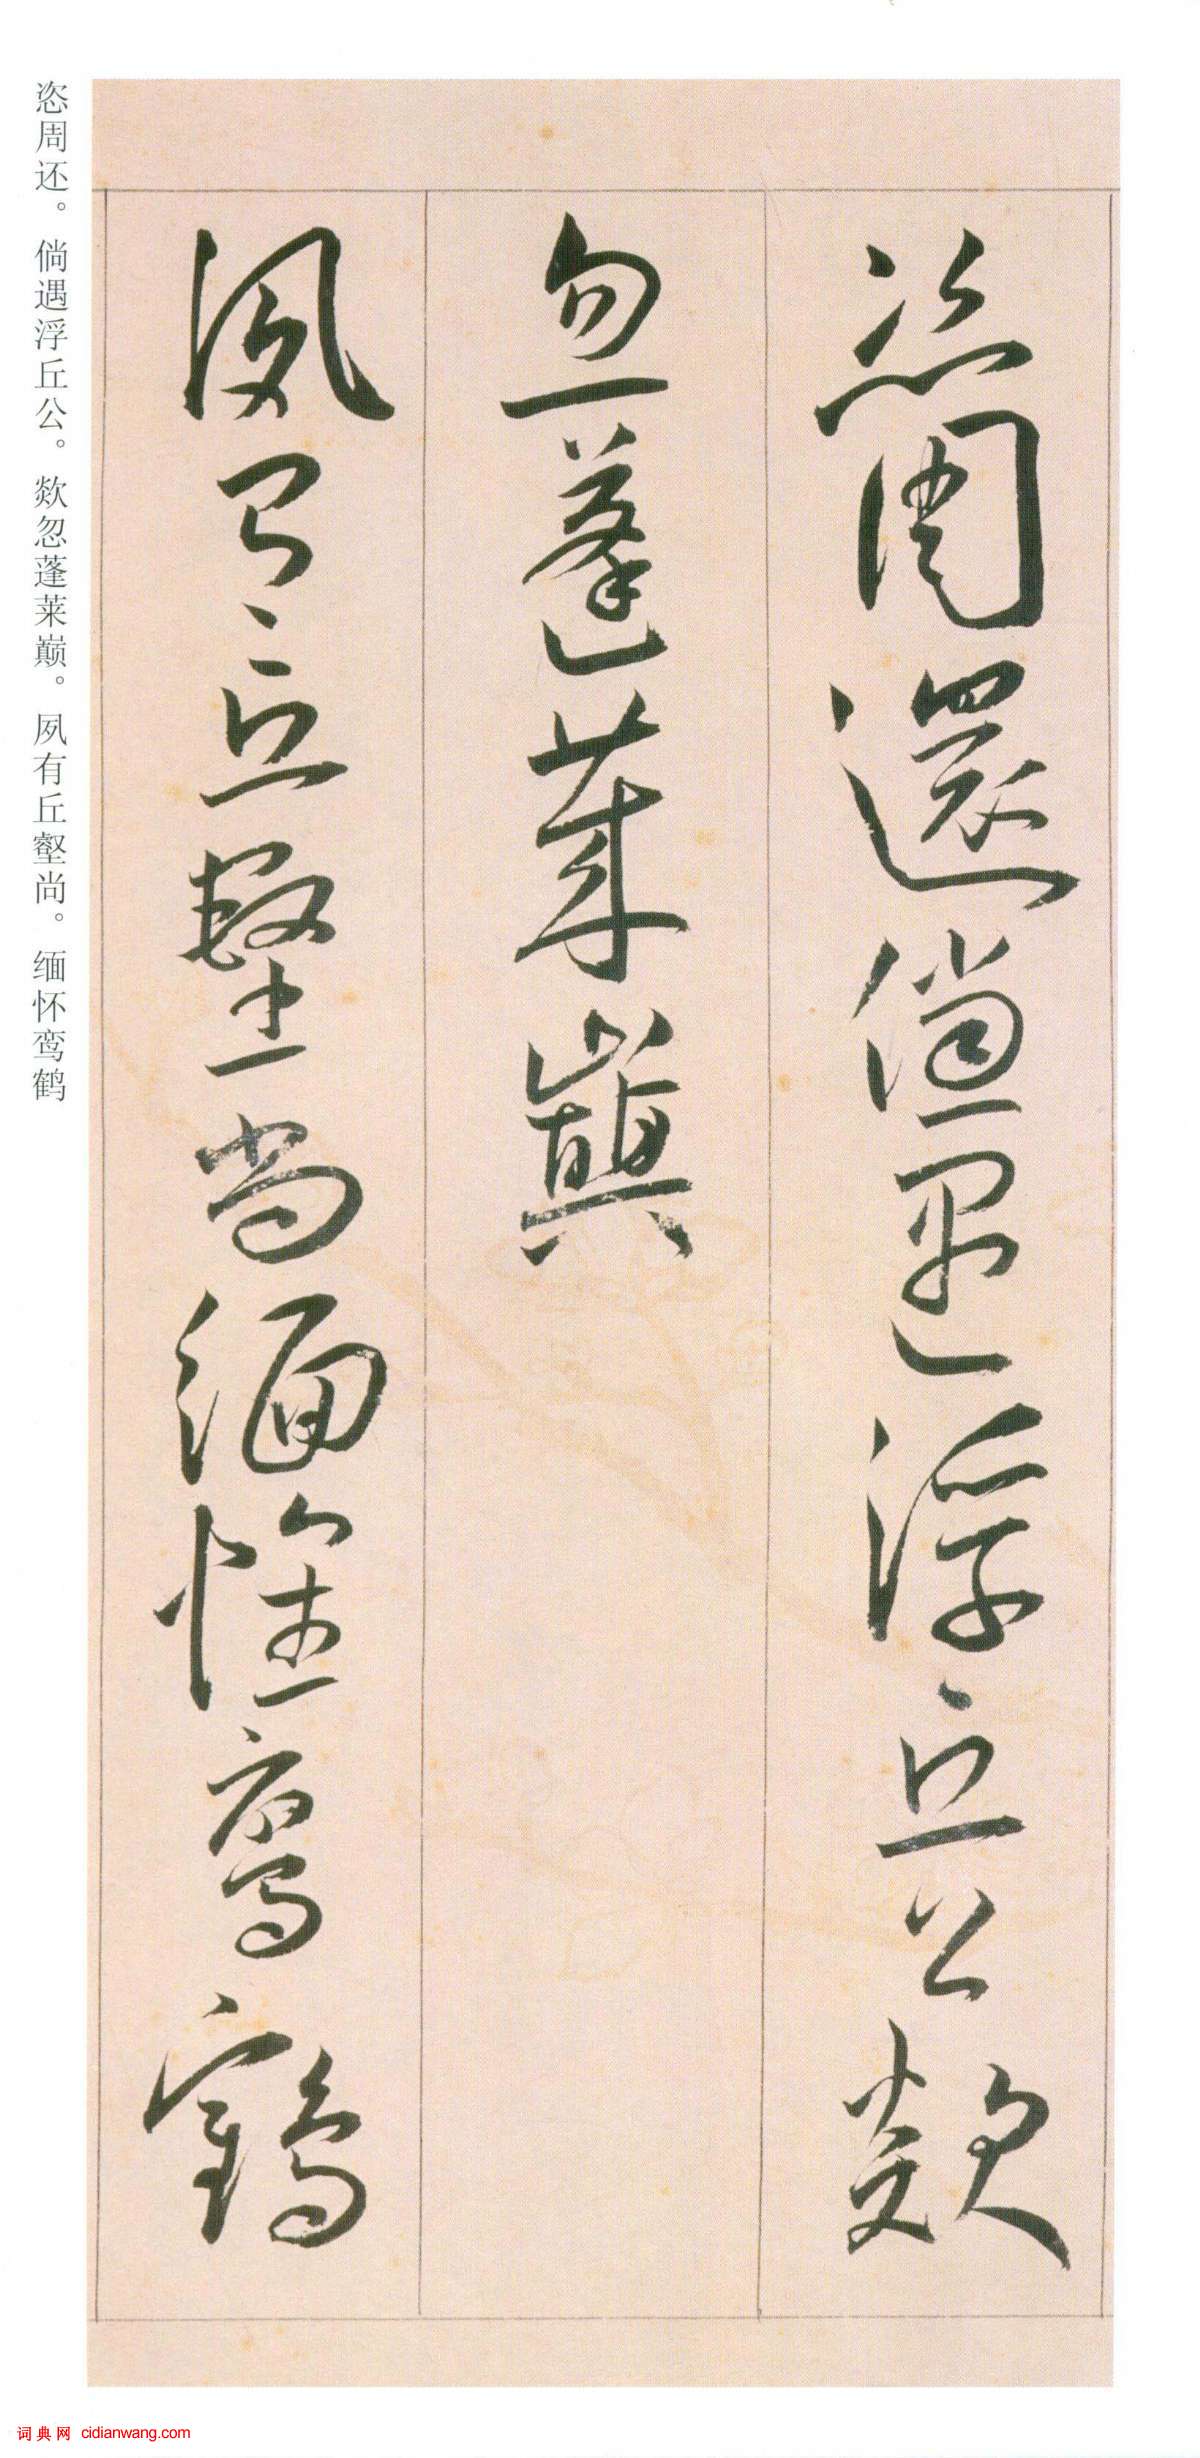 恣周還倘遇浮丘公欻
忽蓬萊巔
夙有丘壑尚緬懷鸞鶴
恣周还。倘遇浮丘公。欻忽蓬莱巅。夙有丘壑尚。缅怀鸾鹤
词典网 cidianwang.com